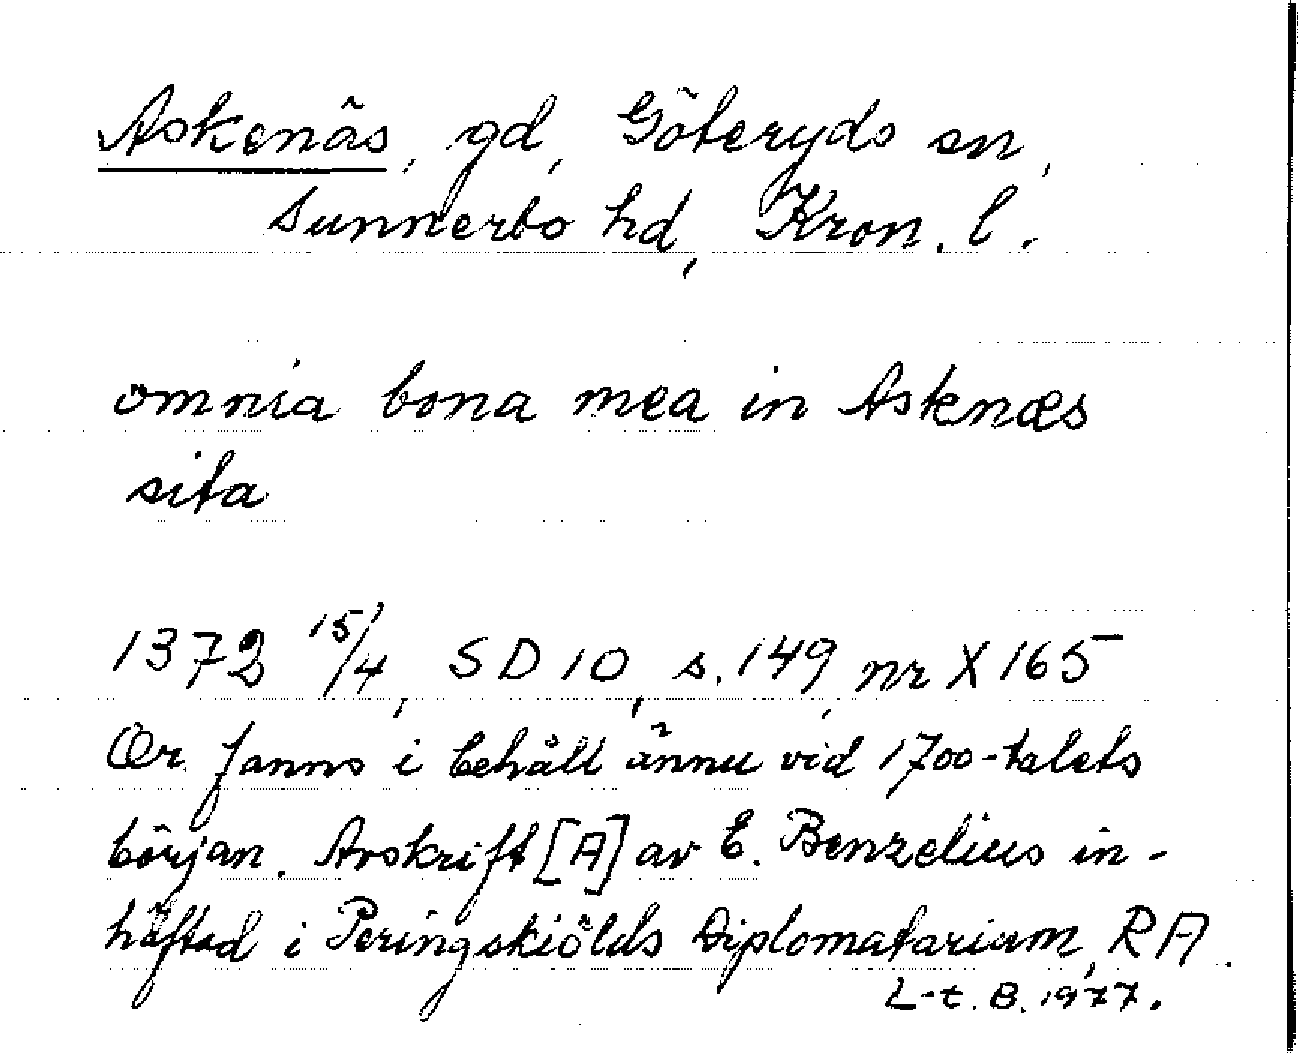 Askenäs, gd, Göteryds sn,
Sunnerbo hd, Kron. l.
omnia bona mea in Asknæs
sita
1372 15/4, SD 10, s. 149, nr X 165
Or. fanns i behåll ännu vid 1700-talets
början. Avskrift [A] av E. Benzelius in-
häftad i Peringskiölds Diplomatarium, RA.
L-t. B. 1977.